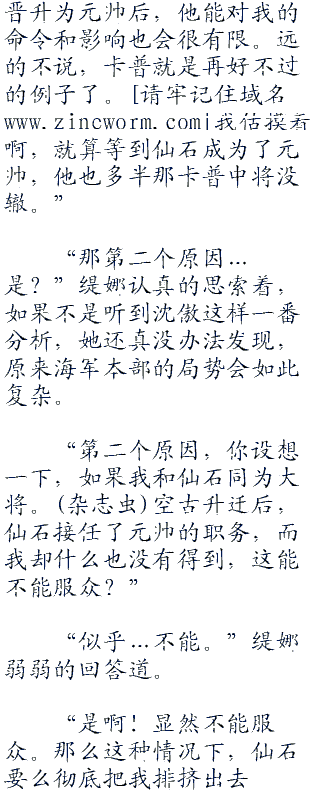 晋升为元帅后，他能对我的
命令和影响也会很有限。远
的不说，卡普就是再好不过
的例子了。[请牢记住域名
www.zincworm.com|我估摸着
啊，就算等到仙石成为了元
帅，他也多半那卡普中将没
辙。”
“那第二个原因…
是？”缇娜认真的思索着，
如果不是听到沈傲这样一番
分析，她还真没办法发现，
原来海军本部的局势会如此
复杂。
“第二个原因，你设想
一下，如果我和仙石同为大
将。(杂志虫)空古升迁后，
仙石接任了元帅的职务，而
我却什么也没有得到，这能
不能服众？”
“似乎…不能。”缇娜
弱弱的回答道。
“是啊！显然不能服
众。那么这种情况下，仙石
要么彻底把我排挤出去